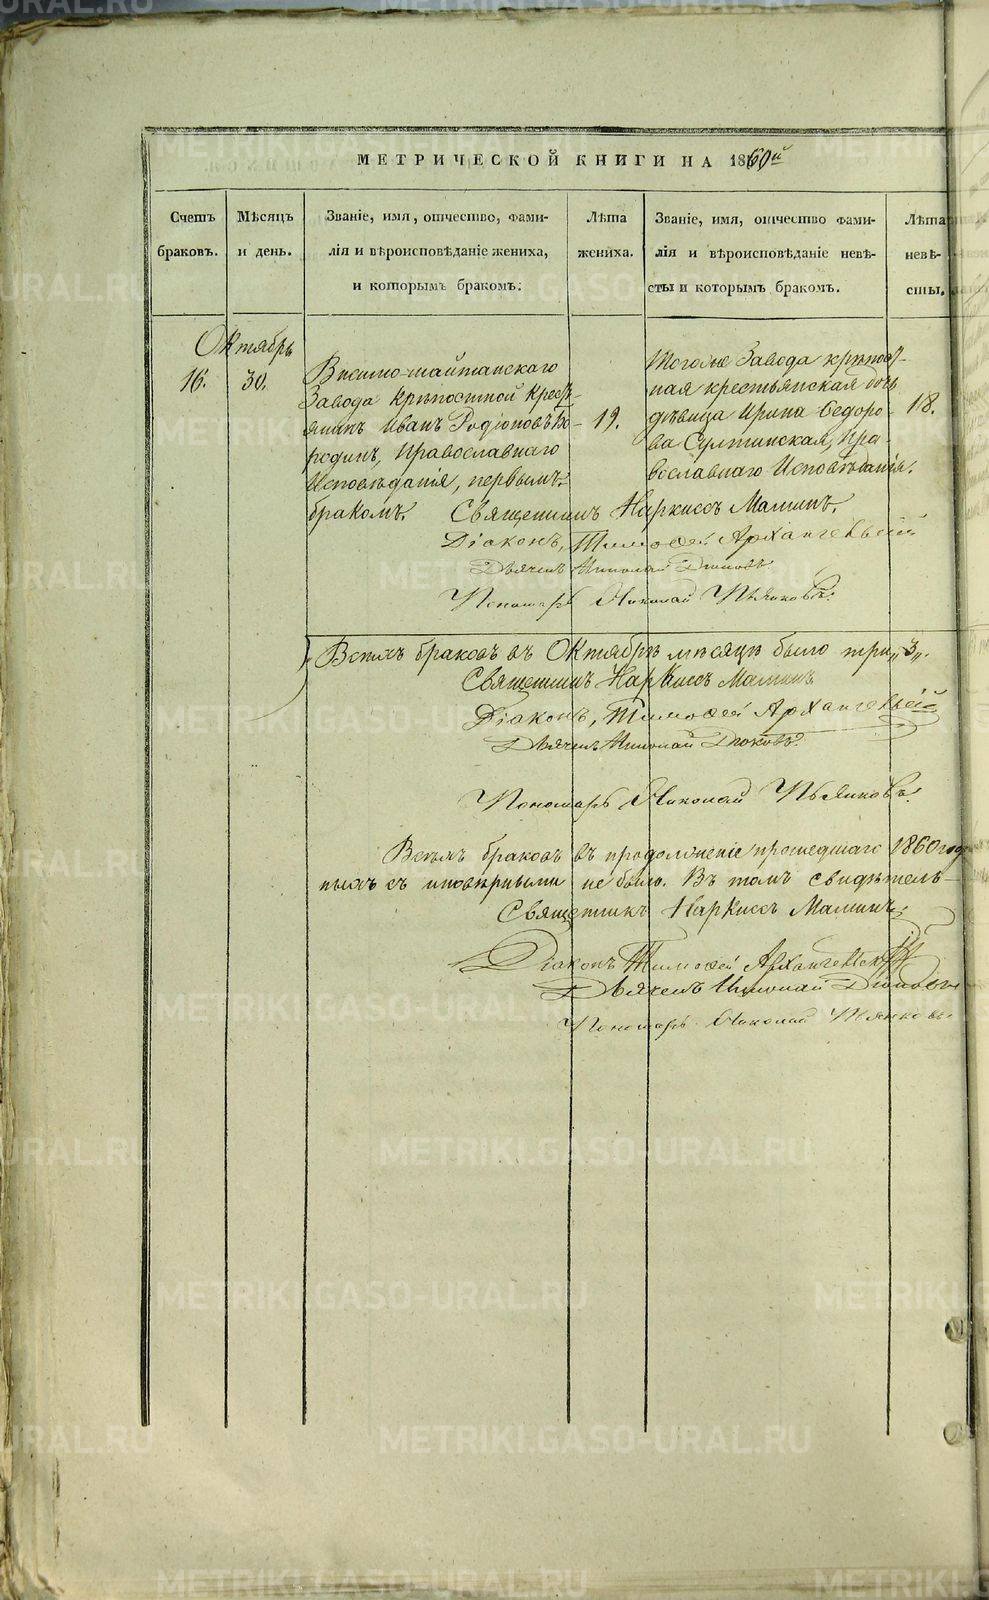 МЕТРИЧЕСКОЙ КНИГИ НА 1860й
Счетъ браковъ.
Мѣсяцъ и день.
Званіе, имя, отчество, фамилія и вѣроисповѣданіе жениха, и которымъ бракомъ.
Лѣта жениха.
Званіе, имя, отчество фамилія и вѣроисповѣданіе невѣсты и которымъ бракомъ.
Лѣта невѣсты.
Октябрь
16.
30.
Висимо-шайтанскаго
Завода Крѣпостной Кресть-
янинъ Иванъ Родіоновъ Бо-
родинъ, Православнаго
Исповѣданія, первымъ
бракомъ.
19.
Тогоже Завода крѣпост-
ная крестьянская дочь
дѣвица Ирина Ѳедоро-
ва Султинская, Пра-
вославнаго Исповѣданія.
18.
Священникъ Наркиссъ Маминъ.
Діаконъ, Тимоѳей Архангельскій
Дьячекъ Николай
Пономарь Николай Пьянковъ.
Всѣхъ браковъ въ Октябрѣ мѣсяцѣ было три „3„.
Священникъ Наркиссъ Маминъ
Діаконъ, Тимоѳей Архангельскій
Дьячекъ Николай
Пономарь Николай Пьянковъ.
Всѣхъ браковъ въ продолженіе прошедшаго 1860 год
ныхъ съ иновѣрными не было. Въ томъ свидѣтель-
Священникъ Наркиссъ Маминъ.
Діаконъ Тимоѳей Архангельскій
Дьячекъ Николай
Пономарь Николай Пьянковъ
METRIKI.GASO-URAL.RU